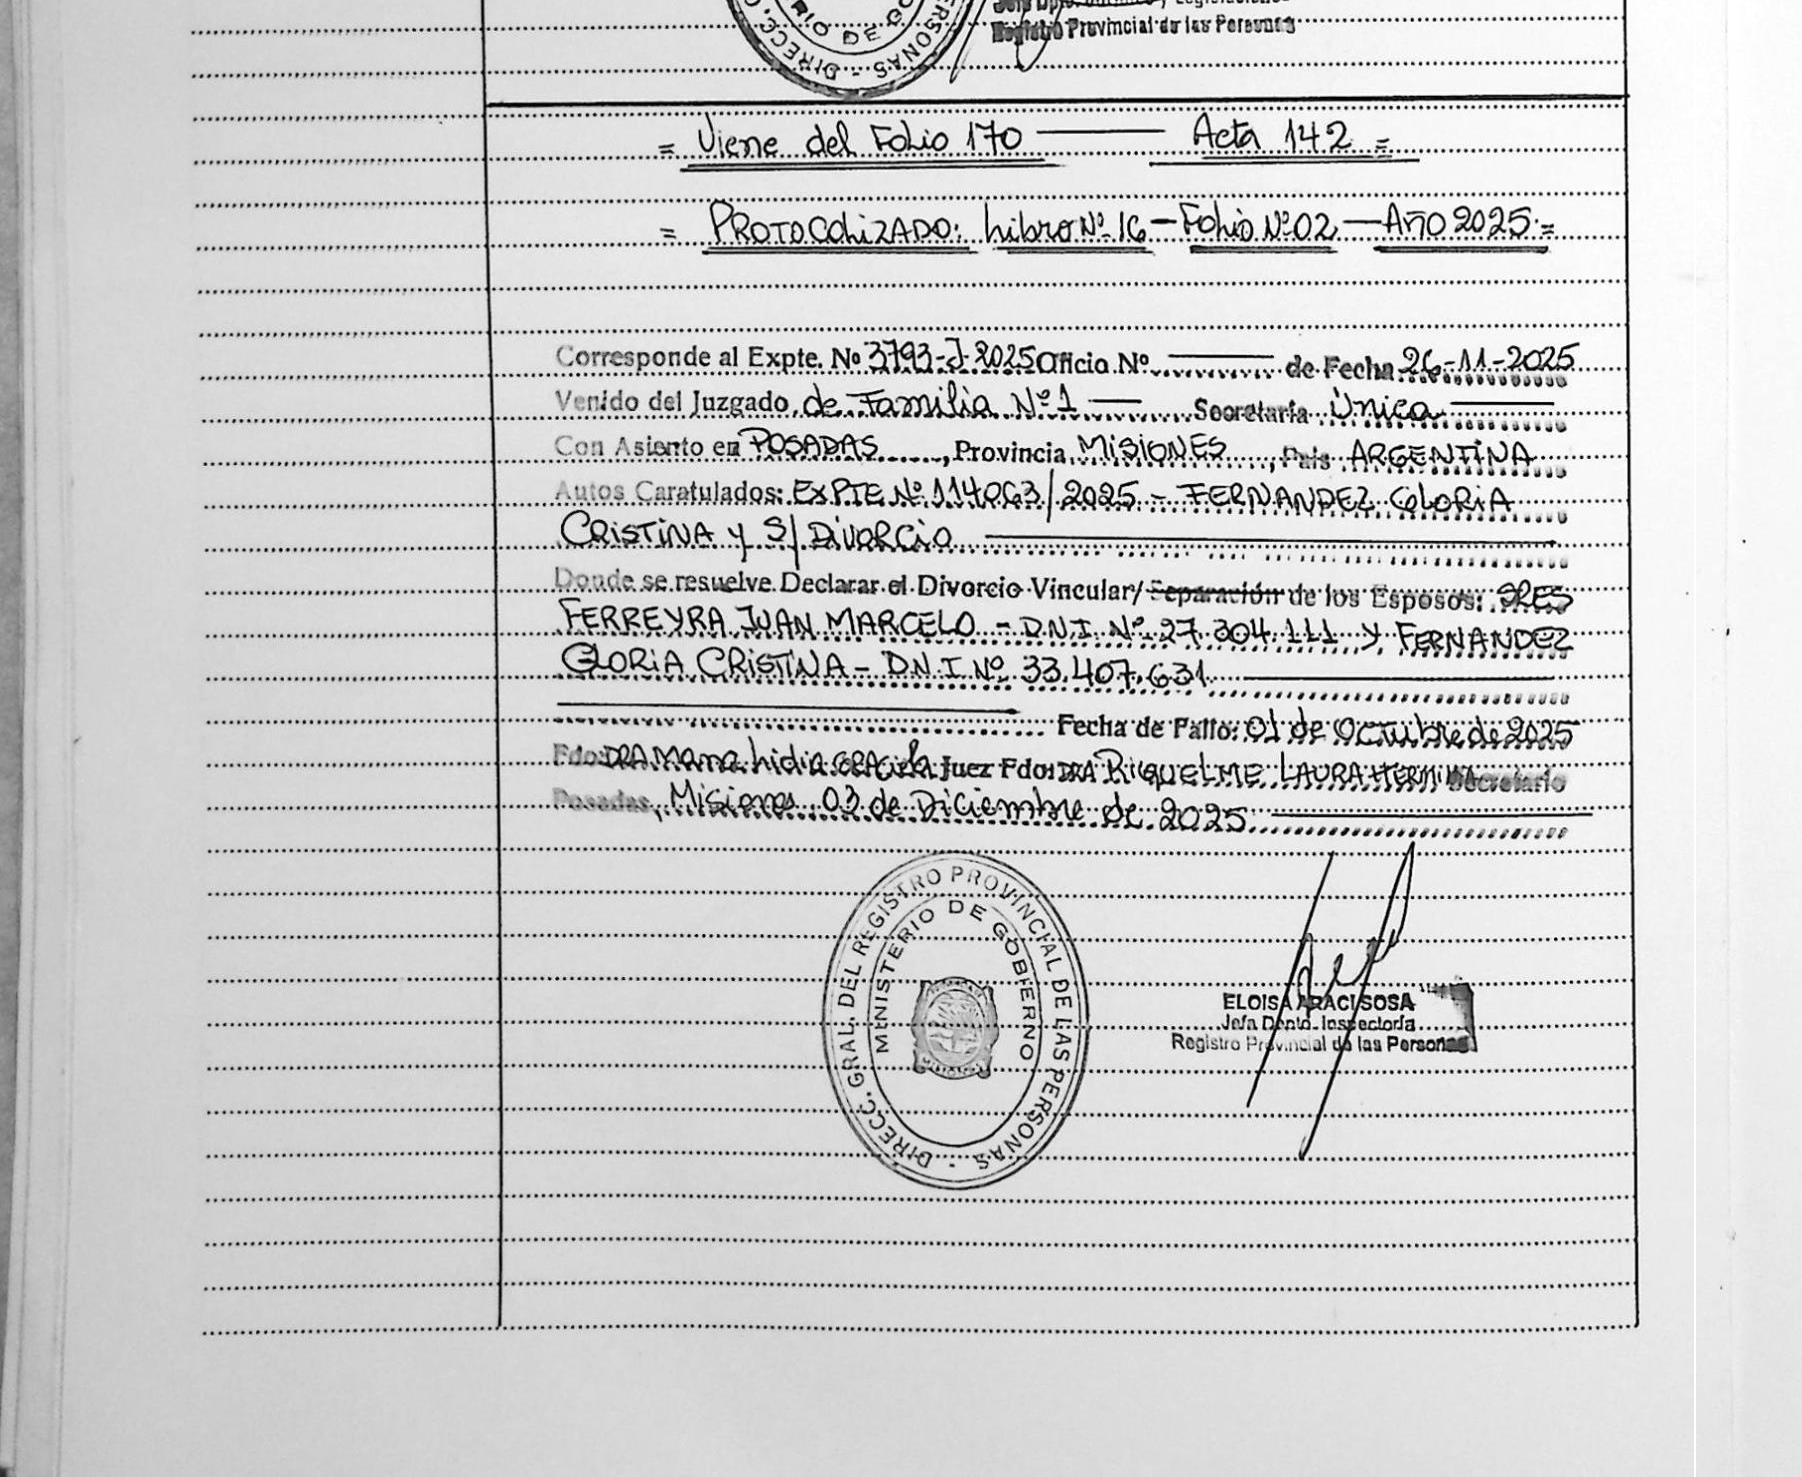 RIO DE GO
DIRECC.
ERSONAS. -
Registro Provincial de las Personas
= Viene del Folio 170 —— Acta 142 =
= PROTOCOLIZADO: Libro Nº 16 — Folio Nº 02 — Año 2025 =
Corresponde al Expte. Nº 3793-J-2025 Oficio Nº ——— de Fecha 26-11-2025
Venido del Juzgado de Familia Nº 1 —— Secretaría Única ———
Con Asiento en POSADAS, Provincia MISIONES, País ARGENTINA
Autos Caratulados: EXPTE Nº 114063/2025 - FERNANDEZ GLORIA
CRISTINA y S/ DIVORCIO ———
Donde se resuelve Declarar el Divorcio Vincular/ Separación de los Esposos: SRES
FERREYRA JUAN MARCELO - D.N.I. Nº 27.304.111 y FERNANDEZ
GLORIA CRISTINA - D.N.I Nº 33.407.631 ———
——— Fecha de Fallo: 01 de Octubre de 2025
Fdo: DRA Lidia Juez Fdo: DRA RIQUELME LAURA Secretario
Posadas, Misiones 03 de Diciembre de 2025 ———
DIRECC. GRAL. DEL REGISTRO PROVINCIAL DE LAS PERSONAS -
MINISTERIO DE GOBIERNO
ELOISA ARACI SOSA
Jefa Depto. Inspectoría
Registro Provincial de las Personas